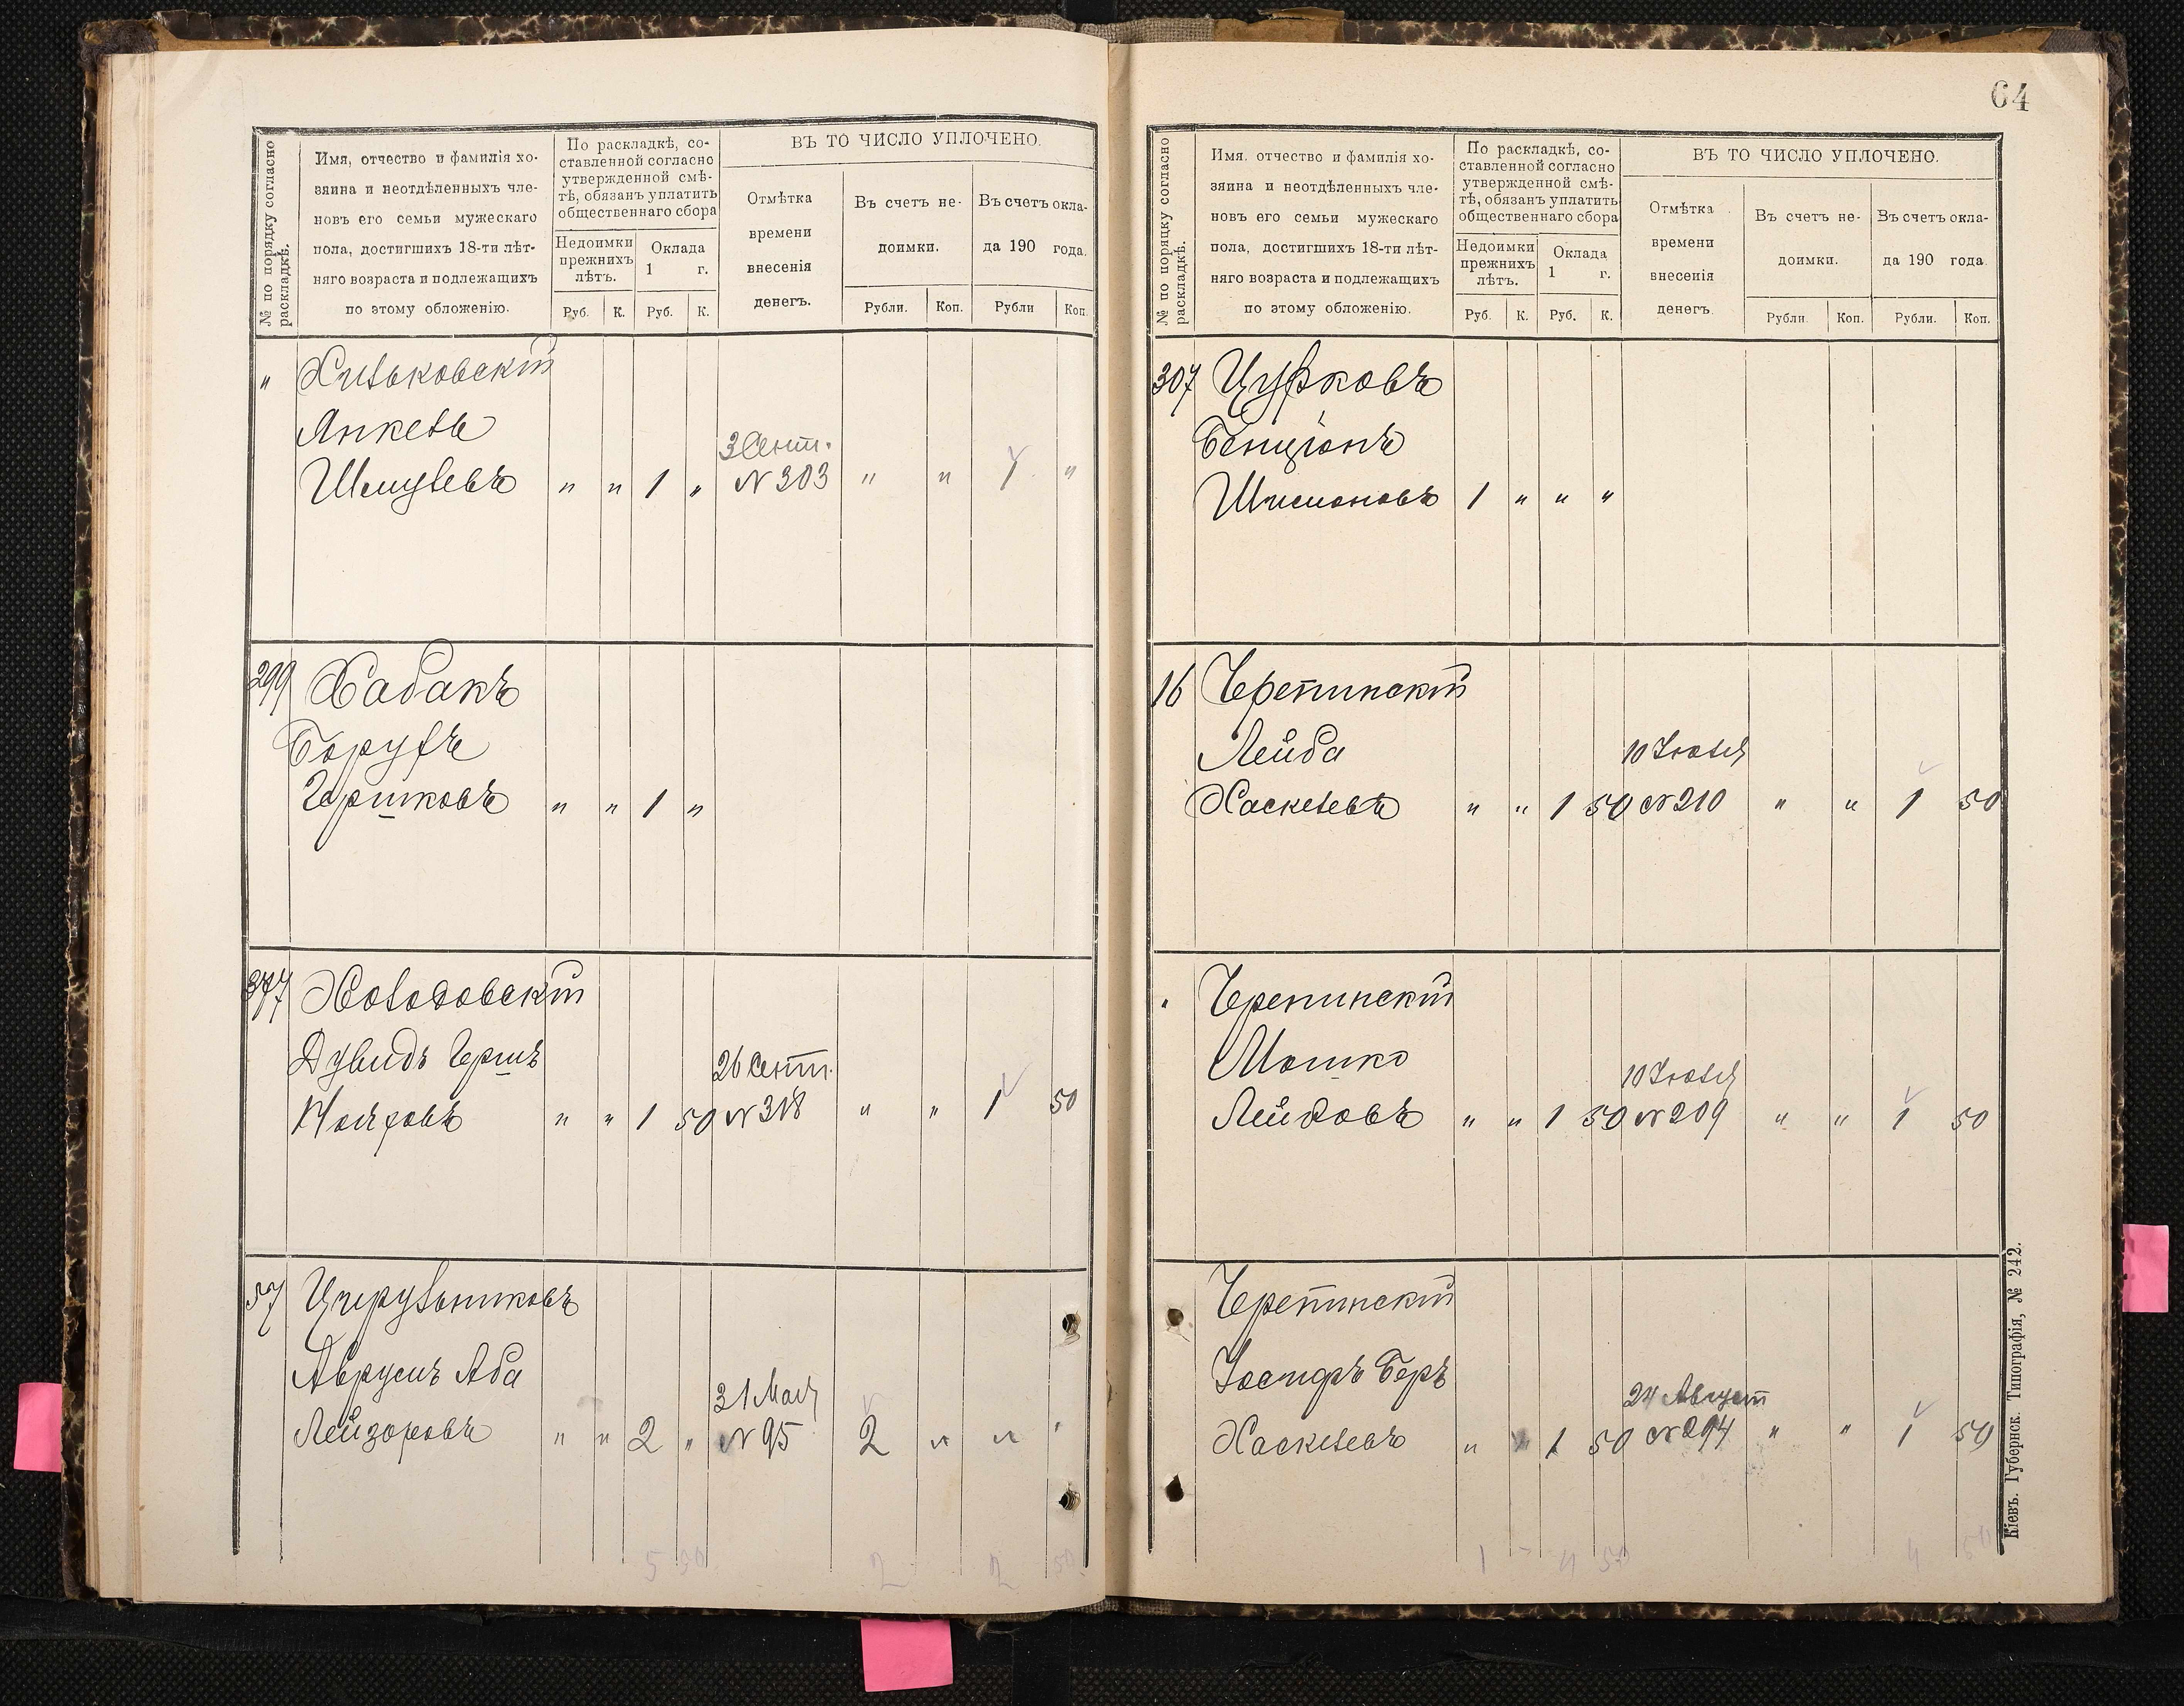 64
№ по порядку согласно раскладкѣ.
Имя, отчество и фамилія хо-
зяина и неотдѣленныхъ чле-
новъ его семьи мужескаго
пола, достигшихъ 18-ти лѣт-
няго возраста и подлежащихъ
по этому обложенію.
По раскладкѣ, со-
ставленной согласно
утвержденной смѣ-
тѣ, обязанъ уплатить
общественнаго сбора
Недоимки
прежнихъ
лѣтъ.
Оклада
1 г.
Руб. К. Руб. К.
ВЪ ТО ЧИСЛО УПЛОЧЕНО.
Отмѣтка
времени
внесенія
денегъ.
Въ счетъ не-
доимки.
Въ счетъ окла-
да 190 года.
Рубли. Коп. Рубли Коп.
" Хильковскій
Янкель
3 Сент.
Шмулевъ " " 1 " № 303 " " 1 "
299 Хабакъ
Борухъ
Гершковъ " " 1 "
377 Холодовскій
Дувидъ Гершъ
26 Сент.
" " 1 50 № 318 " " 1 50
57 Цирульниковъ
Аврумъ Аба
31 Мая
Лейзоровъ " " 2 " № 95 2 " " "
5 50 2 2 50
№ по порядку согласно раскладкѣ.
Имя. отчество и фамилія хо-
зяина и неотдѣленныхъ чле-
новъ его семьи мужескаго
пола, достигшихъ 18-ти лѣт-
няго возраста и подлежащихъ
по этому обложенію.
По раскладкѣ, со-
ставленной согласно
утвержденной смѣ-
тѣ, обязанъ уплатить
общественнаго сбора
Недоимки
прежнихъ
лѣтъ.
Оклада
1 г.
Руб. К. Руб. К.
ВЪ ТО ЧИСЛО УПЛОЧЕНО.
Отмѣтка
времени
внесенія
денегъ.
Въ счетъ не-
доимки.
Въ счетъ окла-
да 190 года.
Рубли. Коп. Рубли. Коп.
307 Цурковъ
Бенціонъ
Шимоновъ 1 " " "
16 Черепинскій
Лейба
10 Іюля
Хаскелевъ " " 1 50 № 210 " " 1 50
" Черепинскій
Мошко
10 Іюля
Лейбовъ " " 1 50 № 209 " " 1 50
Черепинскій
Іосифъ Беръ
24 Август
Хаскелевъ " " 1 50 № 294 " " 1 50
1 " 4 50 4 50
Кіевъ. Губернск. Типографія, № 242.